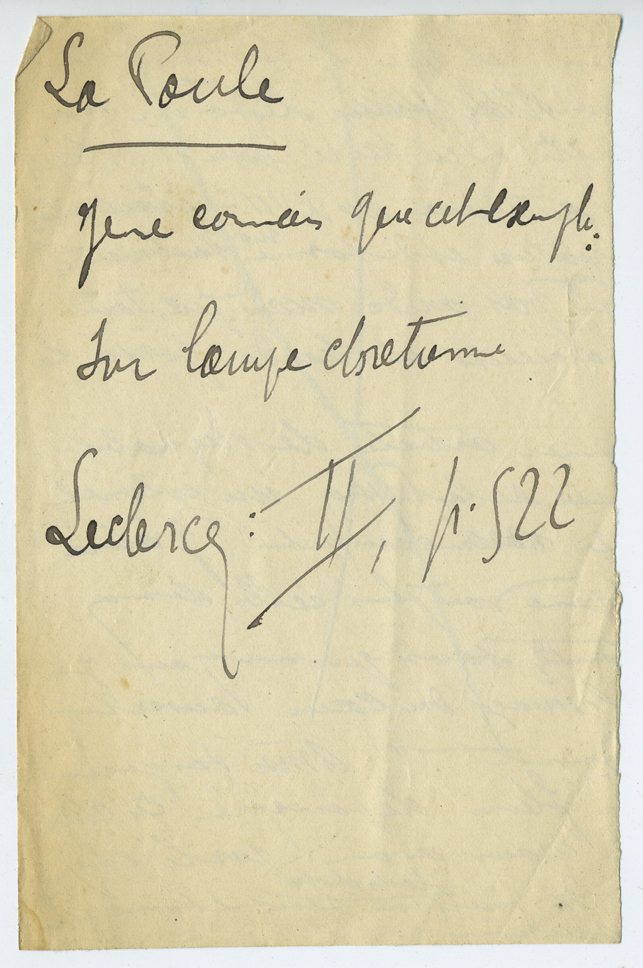 La Poule
Je ne connais que cet exemple:
Sur lampe chretienne
Leclercq: II, p. 522